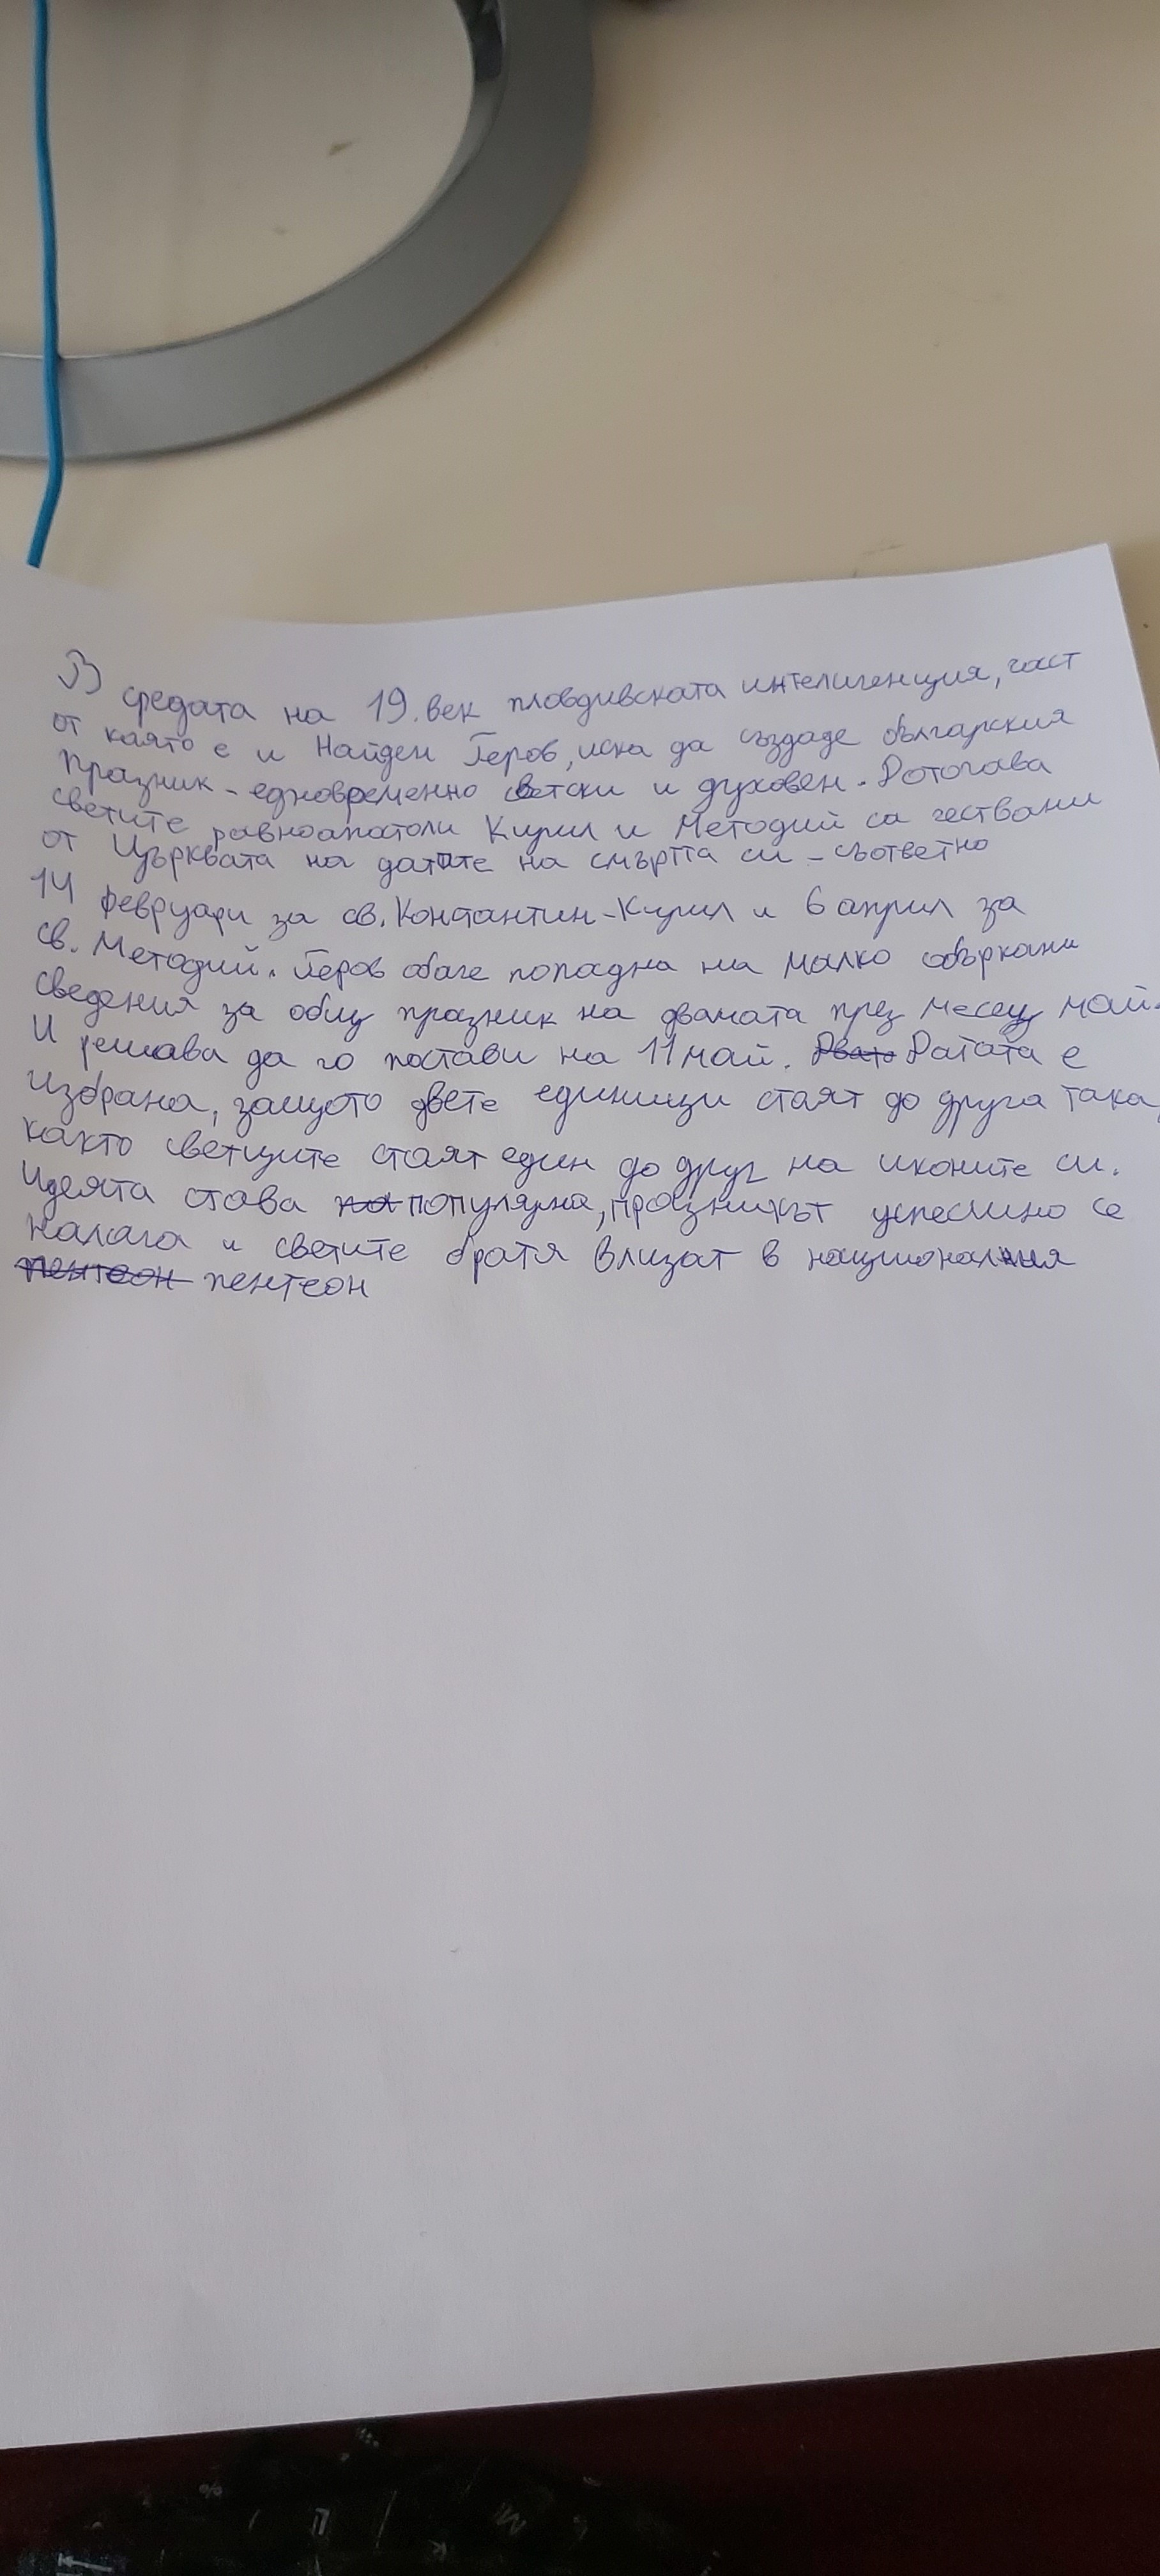 В средата на 19. век пловдивската интелигенция, част
от която е и Найден Геров, иска да създаде българския
празник - едновременно светски и духовен. Дотогава
светите равноапостоли Кирил и Методий са чествани
от Църквата на датите на смъртта си - съответно
14 февруари за св. Константин-Кирил и 6 април за
св. Методий. Геров обаче попадна на малко объркани
сведения за общ празник на двамата през месец май.
И решава да го постави на 11 май. Датата е
избрана, защото двете единици стоят до друга така,
както светците стоят един до друг на иконите си.
Идеята става популярна, празникът успешно се
налага и светите братя влизат в националния
пентеон пентеон